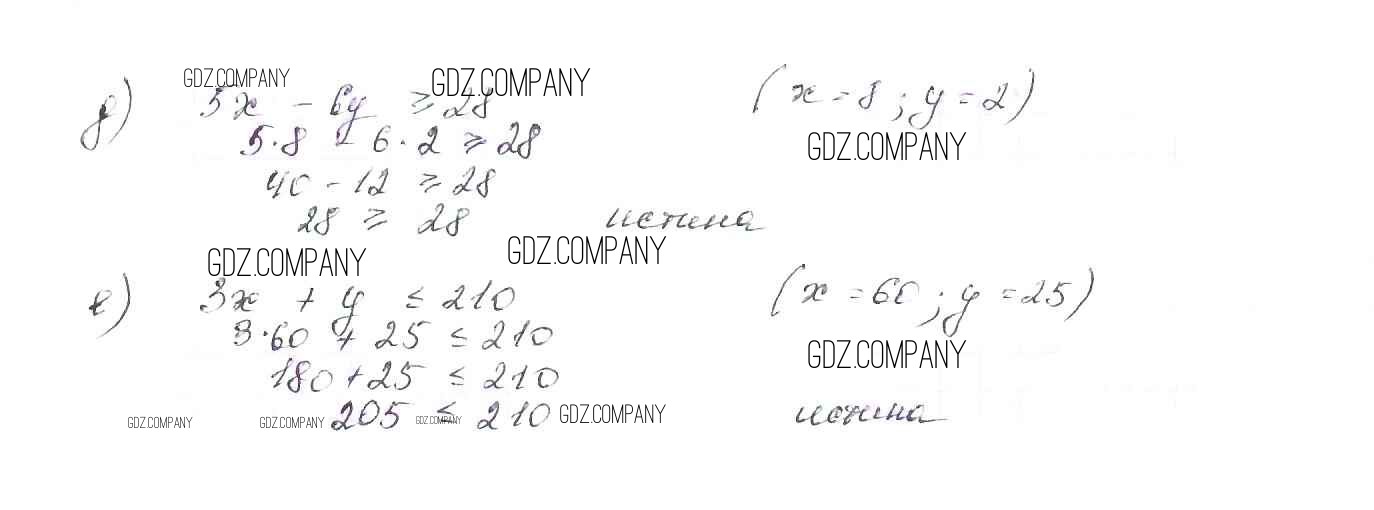 GDZ.COMPANY GDZ.COMPANY
д) 5x - 6y ≥ 28 (x = 8 ; y = 2)
5·8 - 6·2 ≥ 28 GDZ.COMPANY
40 - 12 ≥ 28
28 ≥ 28 истина
GDZ.COMPANY GDZ.COMPANY
е) 3x + y ≤ 210 (x = 60 ; y = 25)
3·60 + 25 ≤ 210
180 + 25 ≤ 210 GDZ.COMPANY
GDZ.COMPANY GDZ.COMPANY 205 ≤ 210 GDZ.COMPANY истина
GDZ.COMPANY